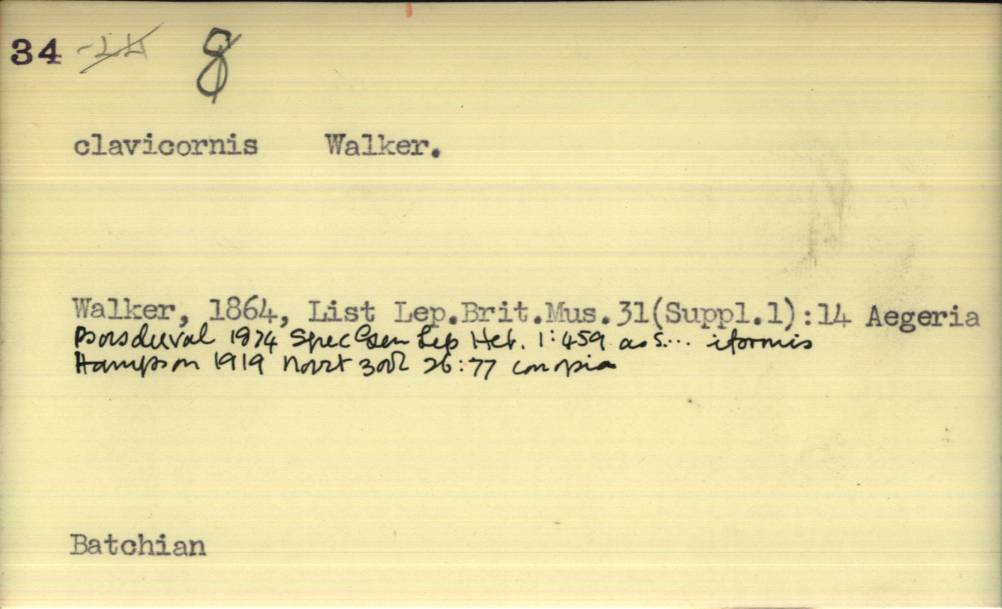 34 8
clavicornis Walker.
Walker, 1864, List Lep.Brit.Mus.31(Suppl.1):14 Aegeria
Boisduval 1874 Spec Gen Lep Het. 1:459 as S... iformis
Hampson 1919 Novit Zool 26:77 conopia
Batchian